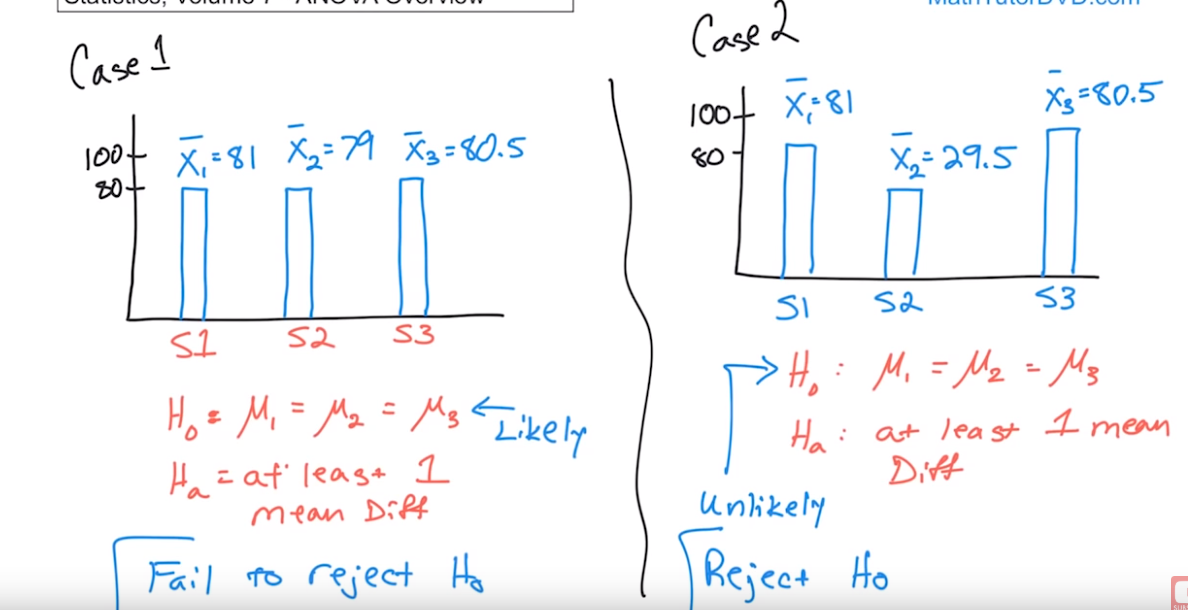 Statistics, Volume 7 - ANOVA Overview
MathTutorDVD.com
Case 1
100
80
X̄₁=81
X̄₂=79
X̄₃=80.5
S1
S2
S3
H₀ = μ₁ = μ₂ = μ₃
Likely
Hₐ = at least 1
mean Diff
Fail to reject H₀
Case 2
100
80
X̄₁=81
X̄₂=29.5
X̄₃=80.5
S1
S2
S3
H₀ : μ₁ = μ₂ = μ₃
Hₐ : at least 1 mean
Diff
Unlikely
Reject H₀